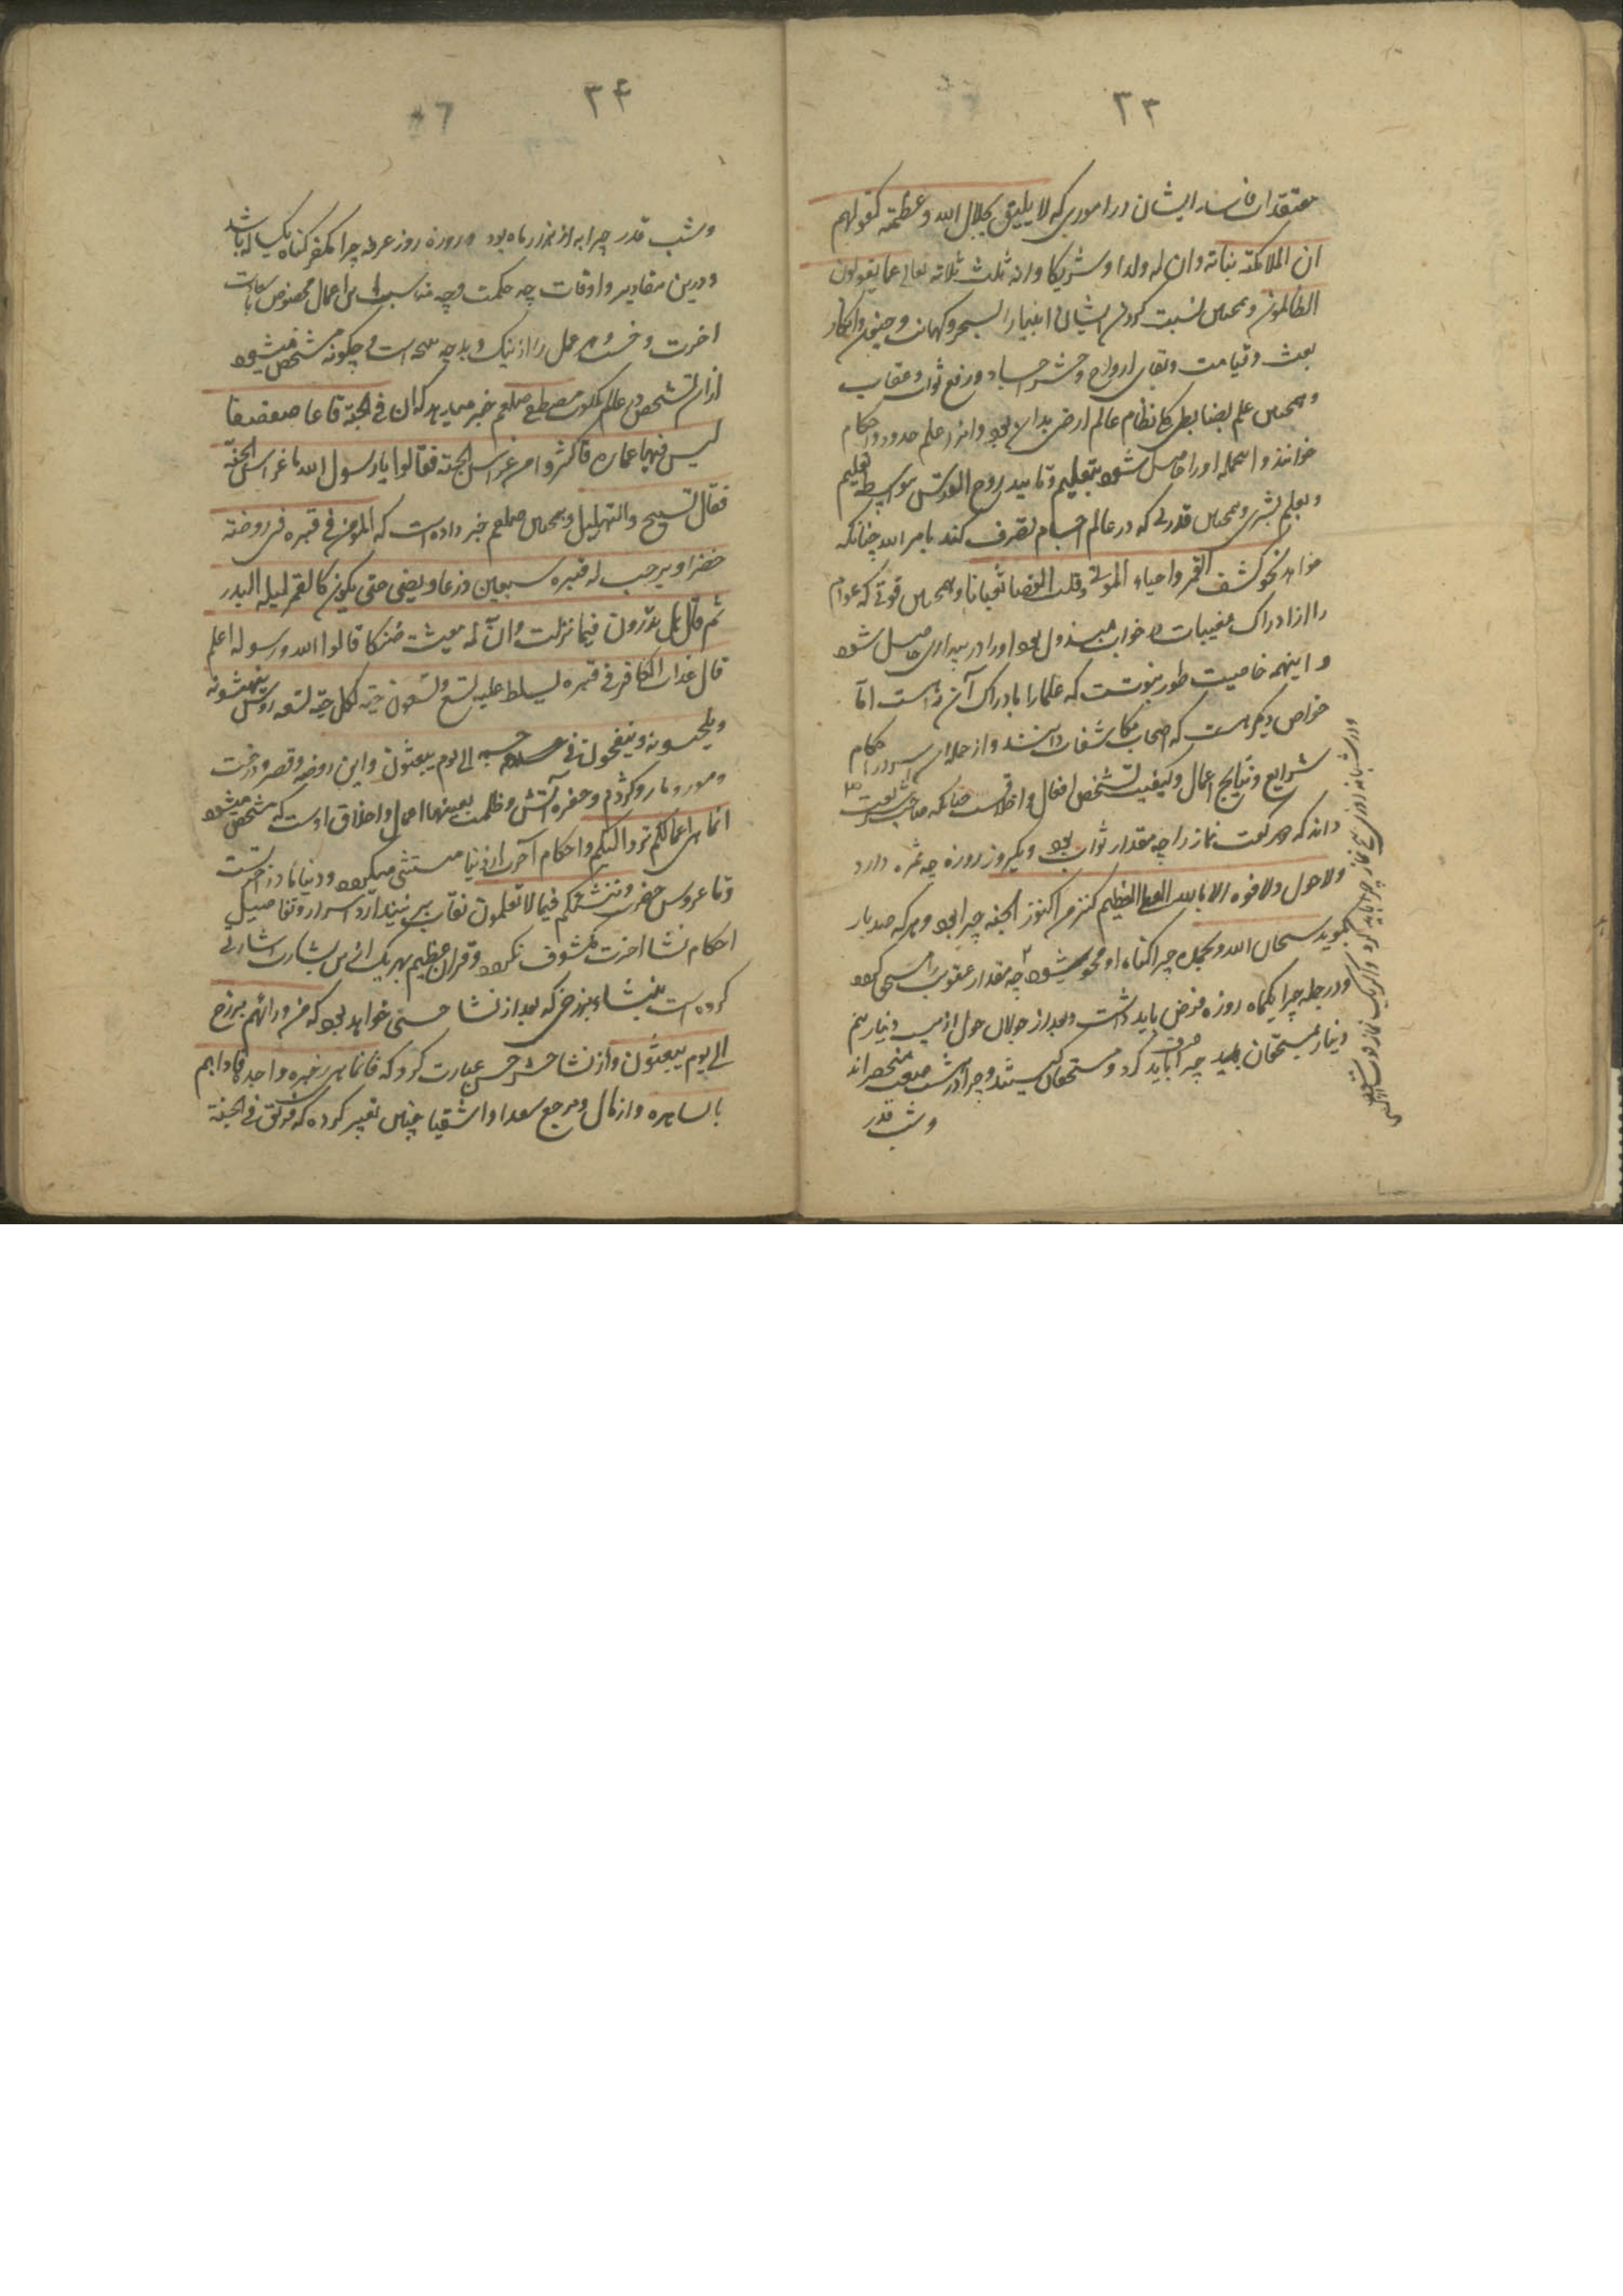 ۳۳
معتقدات فاسد ایشان در اموری که لا یلیق بجلال الله و عظمته کقولهم
ان الملائکته بناته و ان له ولدا و شریکا و انه ثلث ثلاثه تعالی عما یقولون
الظالمون و همچنین نسبت کردن ایشان انبیا را بسحر و کهانت و جنون و انکار
بعث و قیامت و بقای ارواح و حشر اجساد و رفع ثواب و عقاب
و همچنین علم بضابطی کا نظام عالم ارض بدان بود و انرا علم حدود و احکام
خوانند و اینجمله او را حاصل شود بتعلیم و تایید روح القدس بی واسطه تعلیم
و تعلم بشری و همچنین قدرتی که در عالم اجسام تصرف کند بامر الله چنانکه
خواهد نحو کشف القمر و احیاء الموتی و قلب العصا ثعبانا و همچنین قوتی که عوام
را از ادراک مغیبات در خواب مبذول بود او را در بیداری حاصل شود
و اینهمه خاصیت طور نبوتست که علما را بادراک آن راه است اما
خواص دیگر هست که اصحاب مکاشفات دانند و از جمله آن اسرار احکام
شرایع و نتایج اعمال و کیفیت تشخص افعال و اخلاقست چنانکه صاحب شریعت
داند که هر رکعت نماز را چه مقدار ثواب بود و یکروز روزه چه ثمره دارد
و لا حول و لا قوه الا بالله العلی العظیم کنز من اکنوز الجنه چرا بود و هر که صد بار
بگوید سبحان الله و بحمده چرا گناه او محو میشود چه مقدار عقوبت را مستحق گردد
و در جمله چرا یکماه روزه فرض باید داشت و بعد از جولان حول از بیست دینار نیم
دینار بمستحقان صرف چرا باید کرد و مستحقان کیستند و چرا در هشت صنف منحصراند
و شب قدر
۳۴
و شب قدر چرا به از هزار ماه بود و روزه روز عرفه چرا مکفر گناه یکساله باشد
و درین مقادیر و اوقات چه حکمت و چه مناسبت این اعمال مخصوص با سعادت
اخرت و خست هر عمل را از نیک و بد چه نتیجه است و چگونه مشخص میشود
از ان تشخص در عالم ملکوت مصطفی صلعم خبر میدهد که ان فی الجنة قاعا صفصفا
لیس فیها عماره فاکثروا من غراس الجنة فقالوا یا رسول الله ما غراس الجنة
فقال التسبیح و التهلیل و همچنین صلعم خبر داده است که المومن فی قبره فی روضه
خضرا و یرحب له قبره سبعین ذرعا و یضی حتی یکون کالقمر لیله البدر
ثم قال هل تدرون فیما نزلت و ان له معیشت ضنکا قالوا الله و رسوله اعلم
قال عذاب الکافر فی قبره یسلط علیه تسع و تسعون حیة لکل حیة تسعه روس ینهشونه
و یلحسونه و ینفخون فی جسمه الی یوم یبعثون و این روضه و قصر و درخت
و مور و مار و کژدم و حفره آتش و ظلمت بعینها اعمال و اخلاق اوست که مشخص میشود
انما هی اعمالکم ترد الیکم و احکام آخرت از دنیا مستثنی میگردد و دنیا مادر اخرتست
و تا عروس حضرت و ننشئکم فیما لا تعلمون نقاب بر نیندازد اسرار و تفاصیل
احکام نشا اخرت مکشوف نگردد و قران عظیم بهر یک ازین بشارت اشارتی
کرده است بنشاء برزخی که بعد از نشا حسی خواهد بود که من ورائهم برزخ
الی یوم یبعثون و از نشا حشر حسی عبارت کرد که فانما هی زجره واحده فاذا هم
بالساهره و از مآل و مرجع سعدا و اشقیا چنین تعبیر کرده که فریق فی الجنة